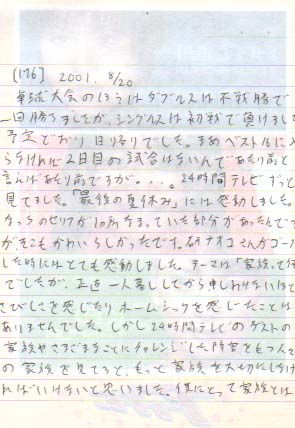 [176] 2001. 8/20
卓球大会のほうはダブルスは不戦勝で
一回勝ちましたが、シングルスは初戦で負けまし
予定どおり日帰りでした。まあベスト
なければ2日目の試合はないんであたり前と
言えばあたり前ですが。...。24時間テレビずっと
見てました。「最後の夏休み」には感動しました。
のセリフが1カ所 まっていた部分があったんで
がそこもかわいらしかったです。研ナオコさんがゴー
した時にはとても感動しました。テーマは「家族って
でしたが、正直一人暮ししてから申しわけないほど
さびしさを感じたりホームシックを感じたことは
ありませんでした。しかし24時間テレビのゲストの
家族やさまざまなことにチャレンジした障害をもつ人
の家族を見てると、もっと家族を大切にしなけ
ればいけないと思いました。僕にとって家族とは